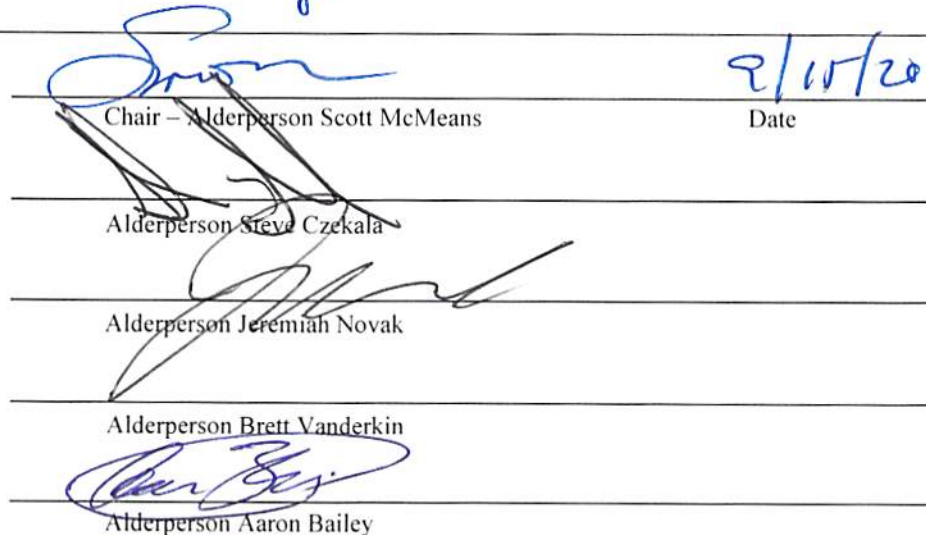 9/15/20
Chair – Alderperson Scott McMeans Date
Alderperson Steve Czekala
Alderperson Jeremiah Novak
Alderperson Brett Vanderkin
Alderperson Aaron Bailey